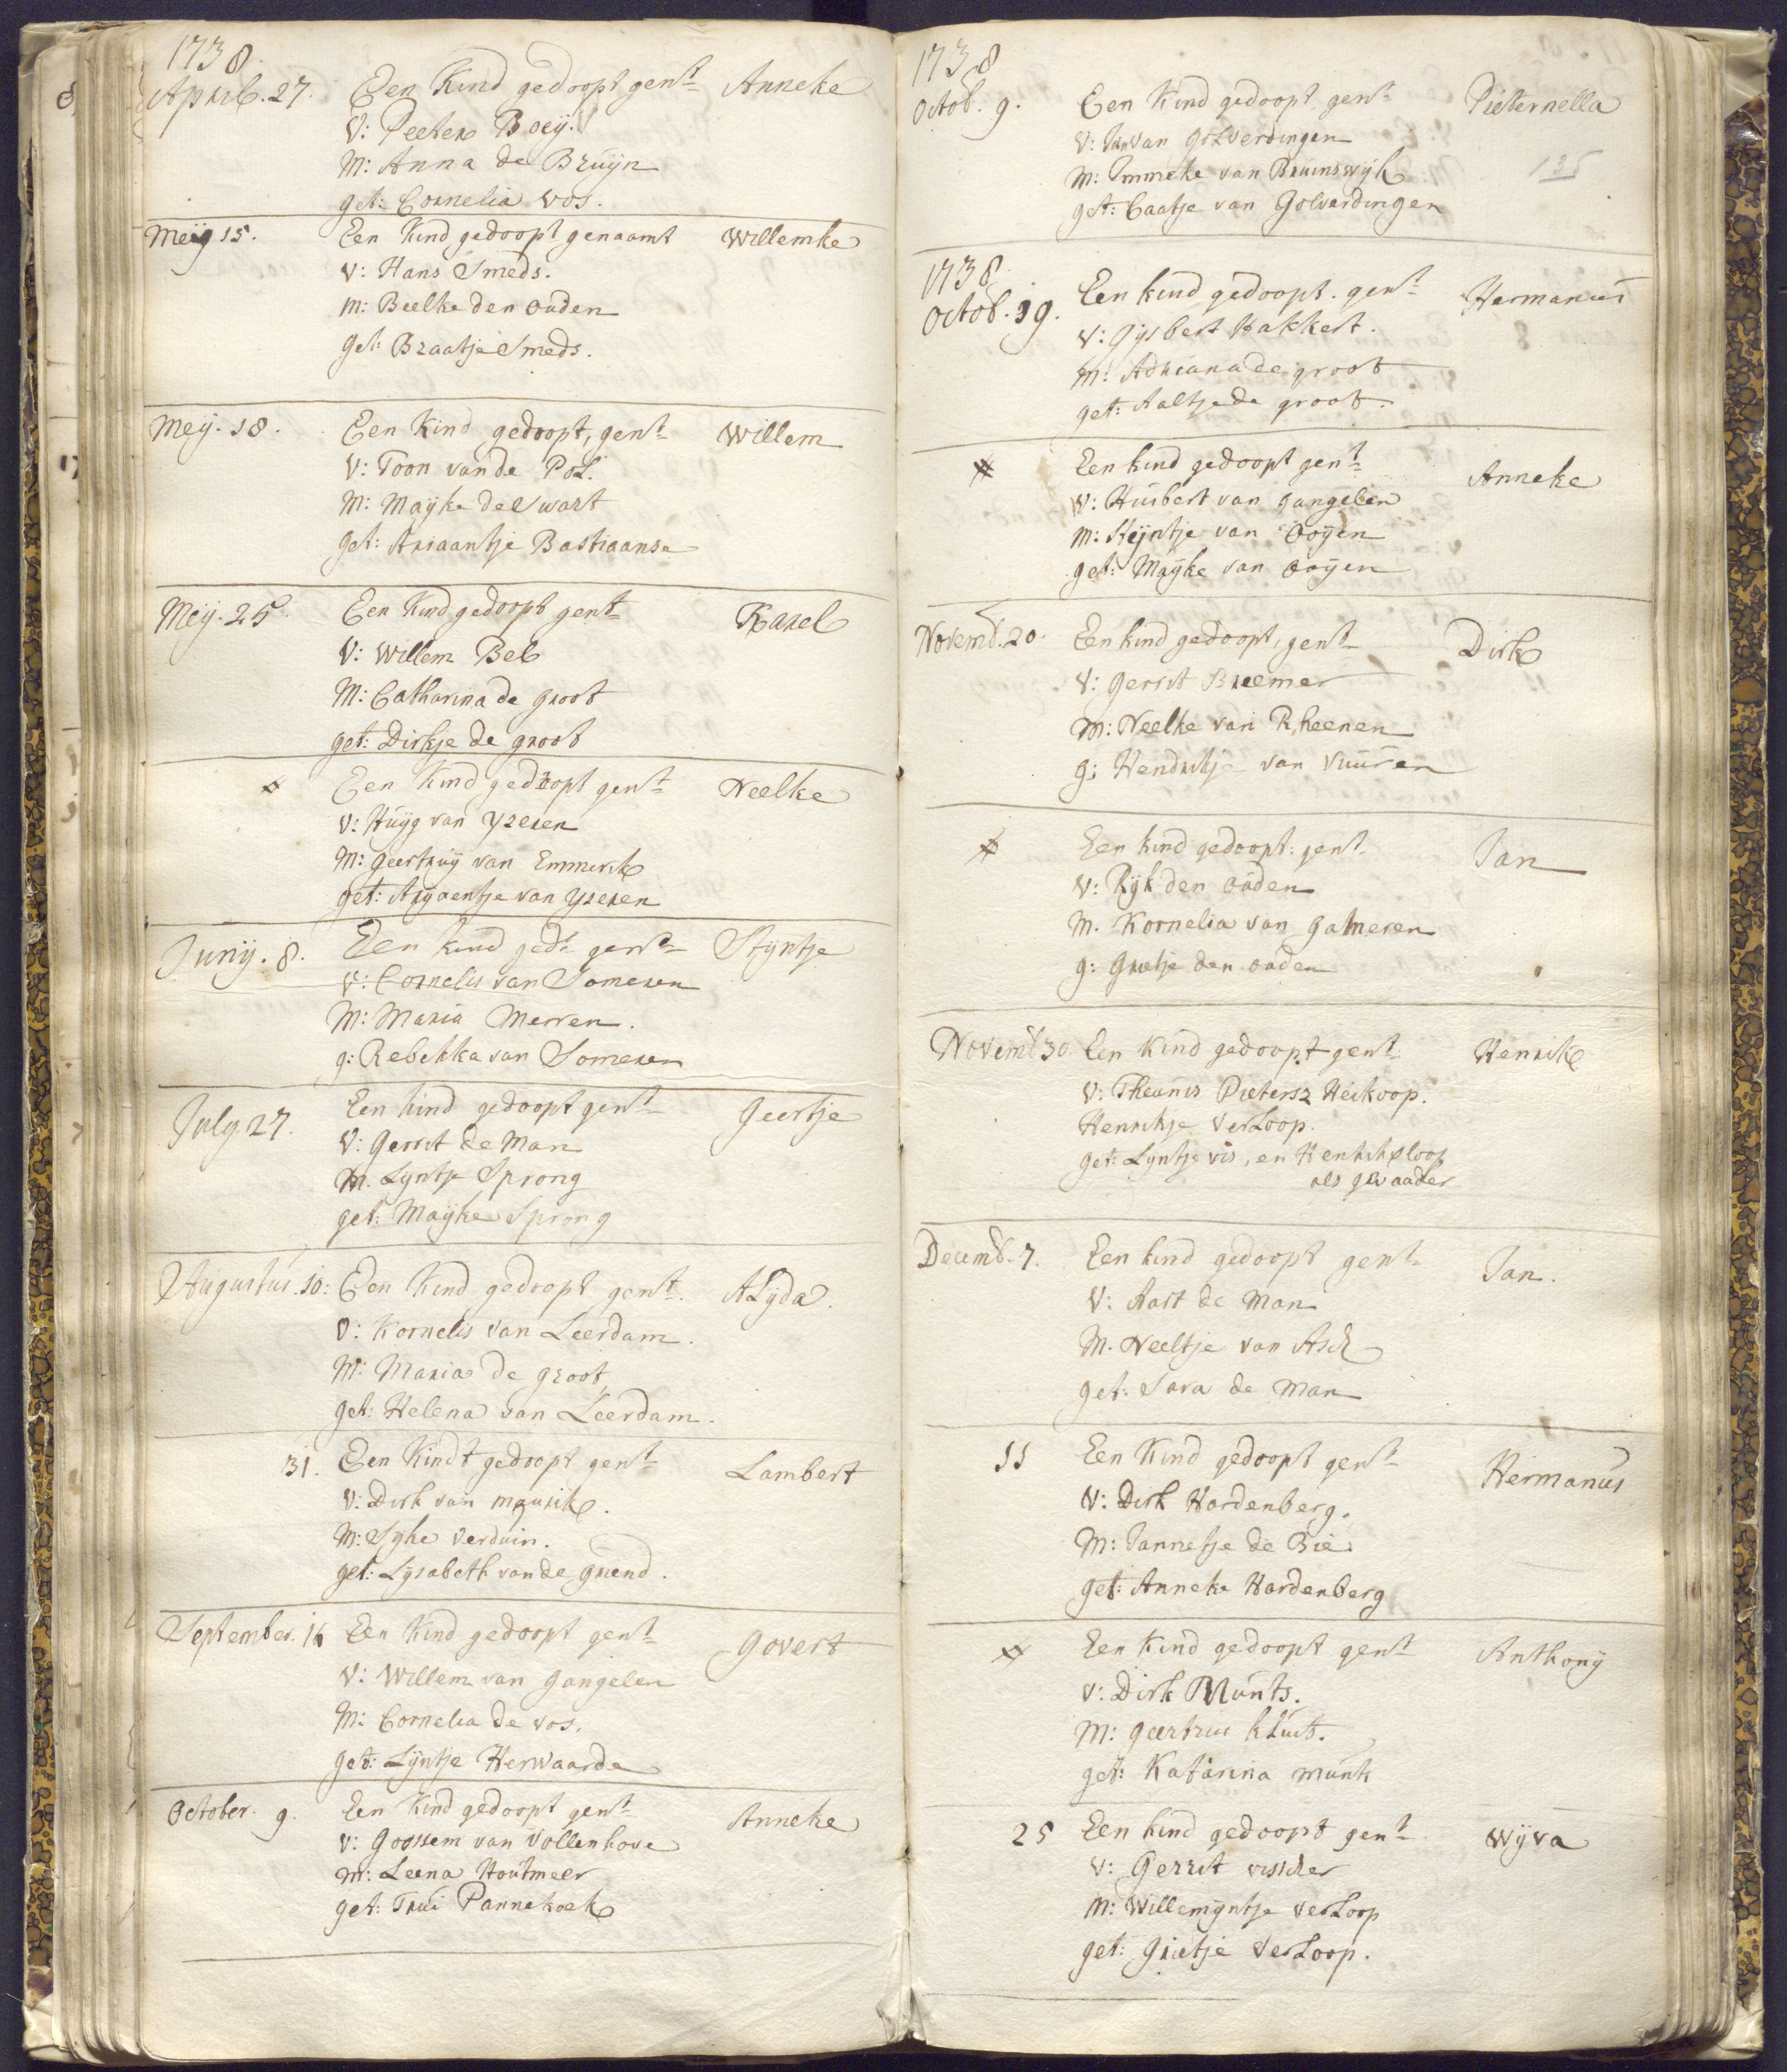 1738.
April. 27. Een Kind gedoopt gent Anneke
V: Peeter Boeij.
M: Anna de Bruijn
get: Cornelia Vos.
Meij 15. Een Kind gedoopt genaamt Willemke
V: Hans Smeds.
M: Beelke den Ouden
Get: Braatje Smeds.
Meij. 18. Een Kind gedoopt, gent Willem
V: Toon van de Pol.
M: Mayke de Swart
Get: Ariaantje Bastiaanse
Meij. 25. Een Kind gedoopt gent Karel
V: Willem Bel
M: Catharina de Groot
get: Dirkje de Groot
Een Kind gedoopt gent Neelke
V: Huijg van Yzeren
M: Geertruij van Emmerik
get: Aryaentje van Yzeren
Junij. 8. Een kind gedt gent Styntje
V: Cornelis van Someren
M: Maria Merren.
g: Rebekka van Someren
July 27. Een kind gedoopt gent Geertje
V: Gerrit de Man
M. Lyntje Sprong
get: Mayke Sprong
Augustus. 10: Een Kind gedoopt gent. Alyda.
V: Kornelis van Leerdam.
M: Maria de Groot
get: Helena van Leerdam.
31. Een Kindt gedoopt gent Lambert
V: Dirk van Maurik.
M: Syke Verduin.
get: Lysabeth van de Griend.
September. 16 Een Kind gedoopt gent Govert
V: Willem van Gangelen
M: Cornelia de Vos.
Get: Lijntje Herwaarde
October. 9. Een Kind gedoopt gent Anneke
V: Goossem van Vollenhove
M: Leena Houtmeer
get: Trui Pannekoek
1738
Octob. 9. Een Kind gedoopt, gent Pieternella
V: Jan van Golverdingen
M: Immeke van Bruinswijk 135
get: Caatje van Golverdingen
1738
Octob. 19. Een kind gedoopt. gent Hermanus
V: Gijsbert Hakkert.
M: Adriana de Groot
get: Aaltje de Groot.
Een kind gedoopt gent Anneke
V: Huibert van Gangelen
M: Steijntje van Ooijen
get: Maijke van Ooijen
Novemb. 20. Een kind gedoopt, gent Dirk
V: Gerrit Breemer
M: Neelke van Rheenen
G: Hendrikje van Vuuren
Een kind gedoopt: gent Jan
V: Ryk den Ouden
M. Kornelia van Gameren
g: Grietje den Ouden
Novemb 30. Een Kind gedoopt gent Henrik
V: Theunis Pietersz Heikoop.
Henrikje Verloop.
Get: Lyntje Vis, en Henrik Sloop
als gevaader
Decemb. 7. Een kind gedoopt gent Jan.
V: Aart de Man
M. Neeltje van Asch
get: Sara de Man
11 Een Kind gedoopt gent Hermanus
V: Dirk Hardenberg.
M: Jannetje de Bie
Get: Anneke Hardenberg
Een Kind gedoopt gent Anthonij
V: Dirk Munts.
M: Geertrui Kluit.
get: Katarina Munk
25 Een kind gedoopt gent Wijva
V: Gerrit Visscher
M: Willemijntje Verloop
get: Grietje Verloop.